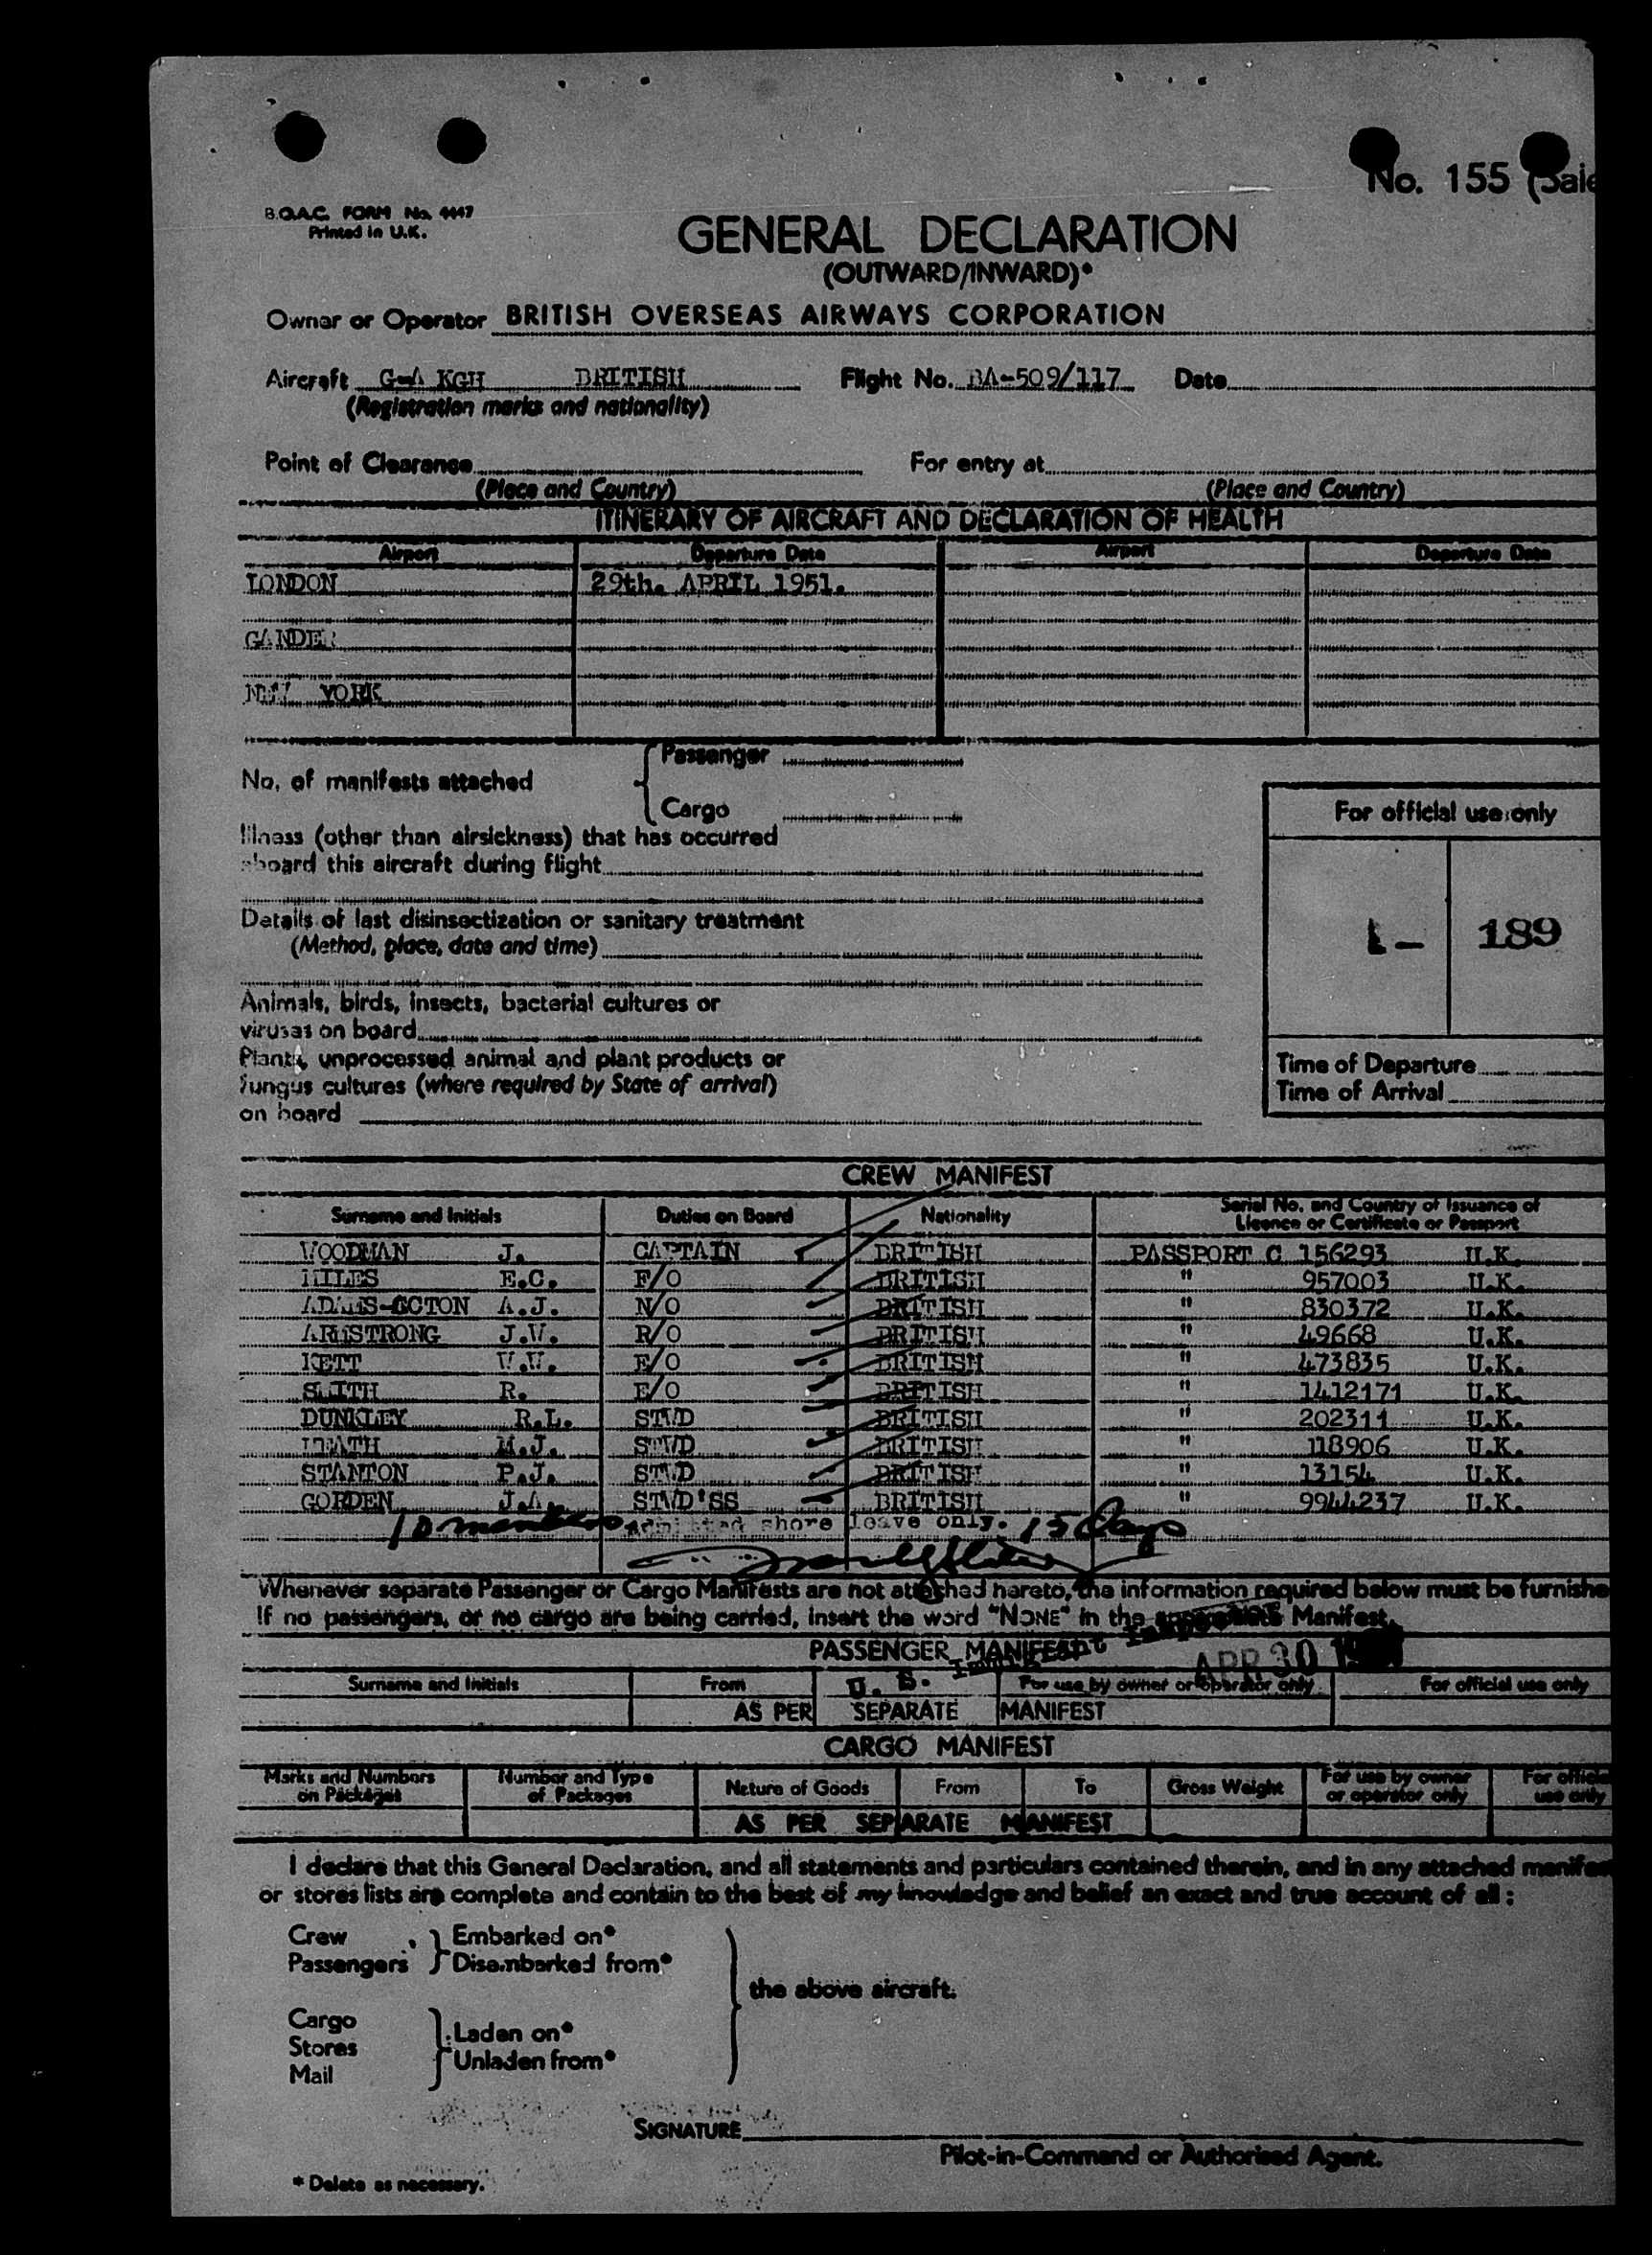 No. 155 (Sale
B.O.A.C. FORM No. 4447
Printed in U.K.
GENERAL DECLARATION
(OUTWARD/INWARD)*
Owner or Operator BRITISH OVERSEAS AIRWAYS CORPORATION
Aircraft G-A KGH BRITISH Flight No. BA-509/117 Date
(Registration marks and nationality)
Point of Clearance For entry at
(Place and Country) (Place and Country)
ITINERARY OF AIRCRAFT AND DECLARATION OF HEALTH
Airport Departure Date Airport Departure Date
LONDON 29th. APRIL 1951.
GANDER
NEW YORK
No. of manifests attached { Passenger
Cargo
For official use only
Illness (other than airsickness) that has occurred
aboard this aircraft during flight
Details of last disinsectization or sanitary treatment
(Method, place, date and time)
1- 189
Animals, birds, insects, bacterial cultures or
viruses on board
Plants, unprocessed animal and plant products or
fungus cultures (where required by State of arrival)
on board
Time of Departure
Time of Arrival
CREW MANIFEST
Surname and Initials Duties on Board Nationality Serial No. and Country of Issuance of Licence or Certificate or Passport
WOODMAN J. CAPTAIN BRITISH PASSPORT C 156293 U.K.
MILES E.C. F/O BRITISH " 957003 U.K.
ADAMS-COTON A.J. N/O BRITISH " 830372 U.K.
ARMSTRONG J.V. R/O BRITISH " 49668 U.K.
KETT W.W. E/O BRITISH " 473835 U.K.
SMITH R. E/O BRITISH " 1412171 U.K.
DUNKLEY R.L. STWD BRITISH " 202311 U.K.
HEATH M.J. STWD BRITISH " 118906 U.K.
STANTON P.J. STWD BRITISH " 13154 U.K.
GORDEN J.A. STWD'SS BRITISH " 9944237 U.K.
10 members Admitted shore leave only. 15 days
Whenever separate Passenger or Cargo Manifests are not attached hereto, the information required below must be furnishe
If no passengers, or no cargo are being carried, insert the word "NONE" in the appropriate Manifest.
PASSENGER MANIFEST
U. S. APR 30 19
Surname and Initials From For use by owner or operator only For official use only
AS PER SEPARATE MANIFEST
CARGO MANIFEST
Marks and Numbers on Packages Number and Type of Packages Nature of Goods From To Gross Weight For use by owner or operator only For official use only
AS PER SEPARATE MANIFEST
I declare that this General Declaration, and all statements and particulars contained therein, and in any attached manifes
or stores lists are complete and contain to the best of my knowledge and belief an exact and true account of all:
Crew } Embarked on*
Passengers } Disembarked from*
the above aircraft.
Cargo
Stores } Laden on*
Mail } Unladen from*
SIGNATURE
Pilot-in-Command or Authorised Agent.
* Delete as necessary.